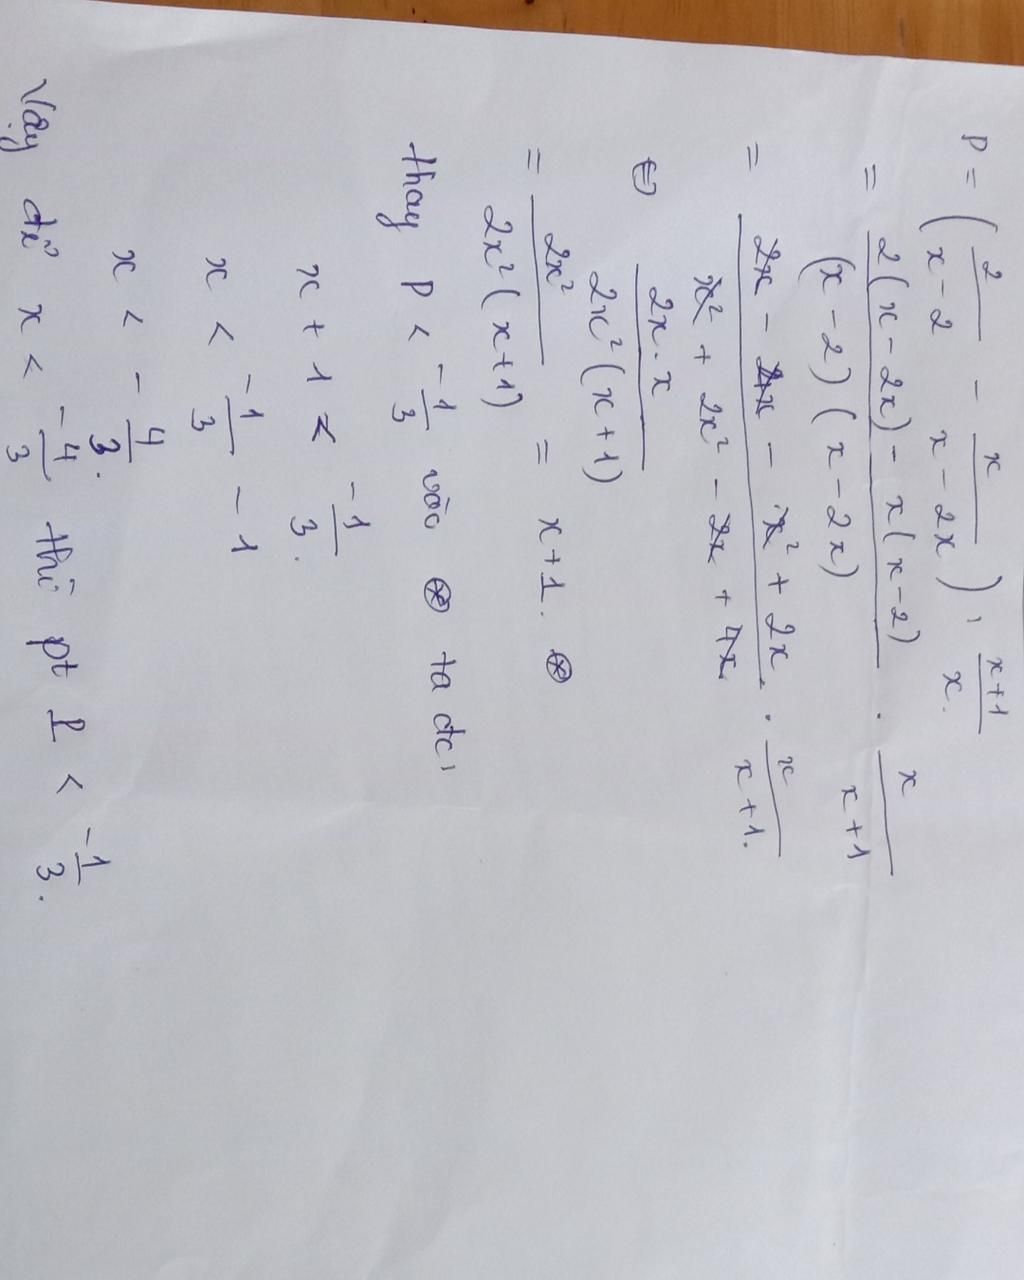 P = ( 2/(x-2) - x/(x-2x) ) : (x+1)/x.
= (2(x-2x) - x(x-2))/((x-2)(x-2x)) . x/(x+1)
= (2x - 4x - x² + 2x)/(x² + 2x² - 2x + 4x) . x/(x+1).
⇔ (2x.x)/(2x²(x+1))
= 2x²/(2x²(x+1)) = x+1. ⊛
thay P < -1/3 vào ⊛ ta đc:
x + 1 < -1/3.
x < -1/3 - 1
x < -4/3.
Vậy để x < -4/3 thì pt P < -1/3.